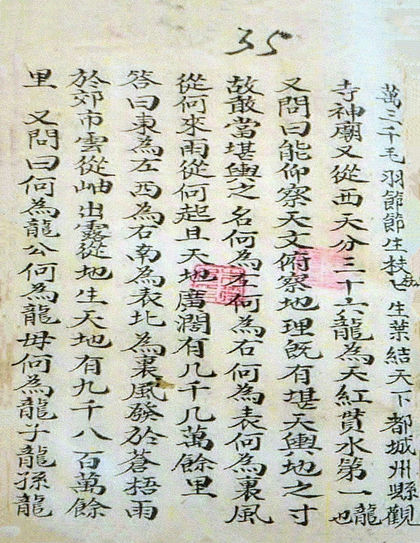 35
萬三千毛羽節節生枝生葉結天下都城州縣觀
寺神廟又從西天分三十六龍為天紅貫水第一龍也
又問曰能仰察天文俯察地理既有堪天輿地之寸
故敢當堪輿之名何為左何為右何為表何為裏風
從何來雨從何起且天地廣濶有几千几萬餘里
答曰東為左西為右南為表北為裏風發於蒼梧雨
於郊市雲從岫出霧從地生天地有九千八百萬餘
里 又問曰何為龍公何為龍母何為龍子龍孫龍